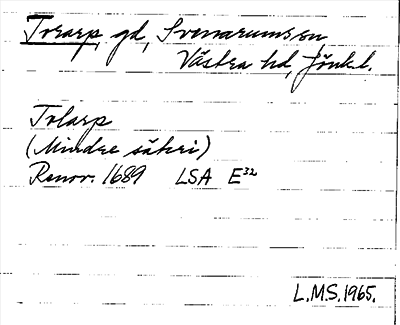 Torarp, gd, Svenarums sn
Västra hd, Jönk.l.
Tolarp
(Mindre säteri)
Renov. 1689 LSA E³²
L.M.S. 1965.